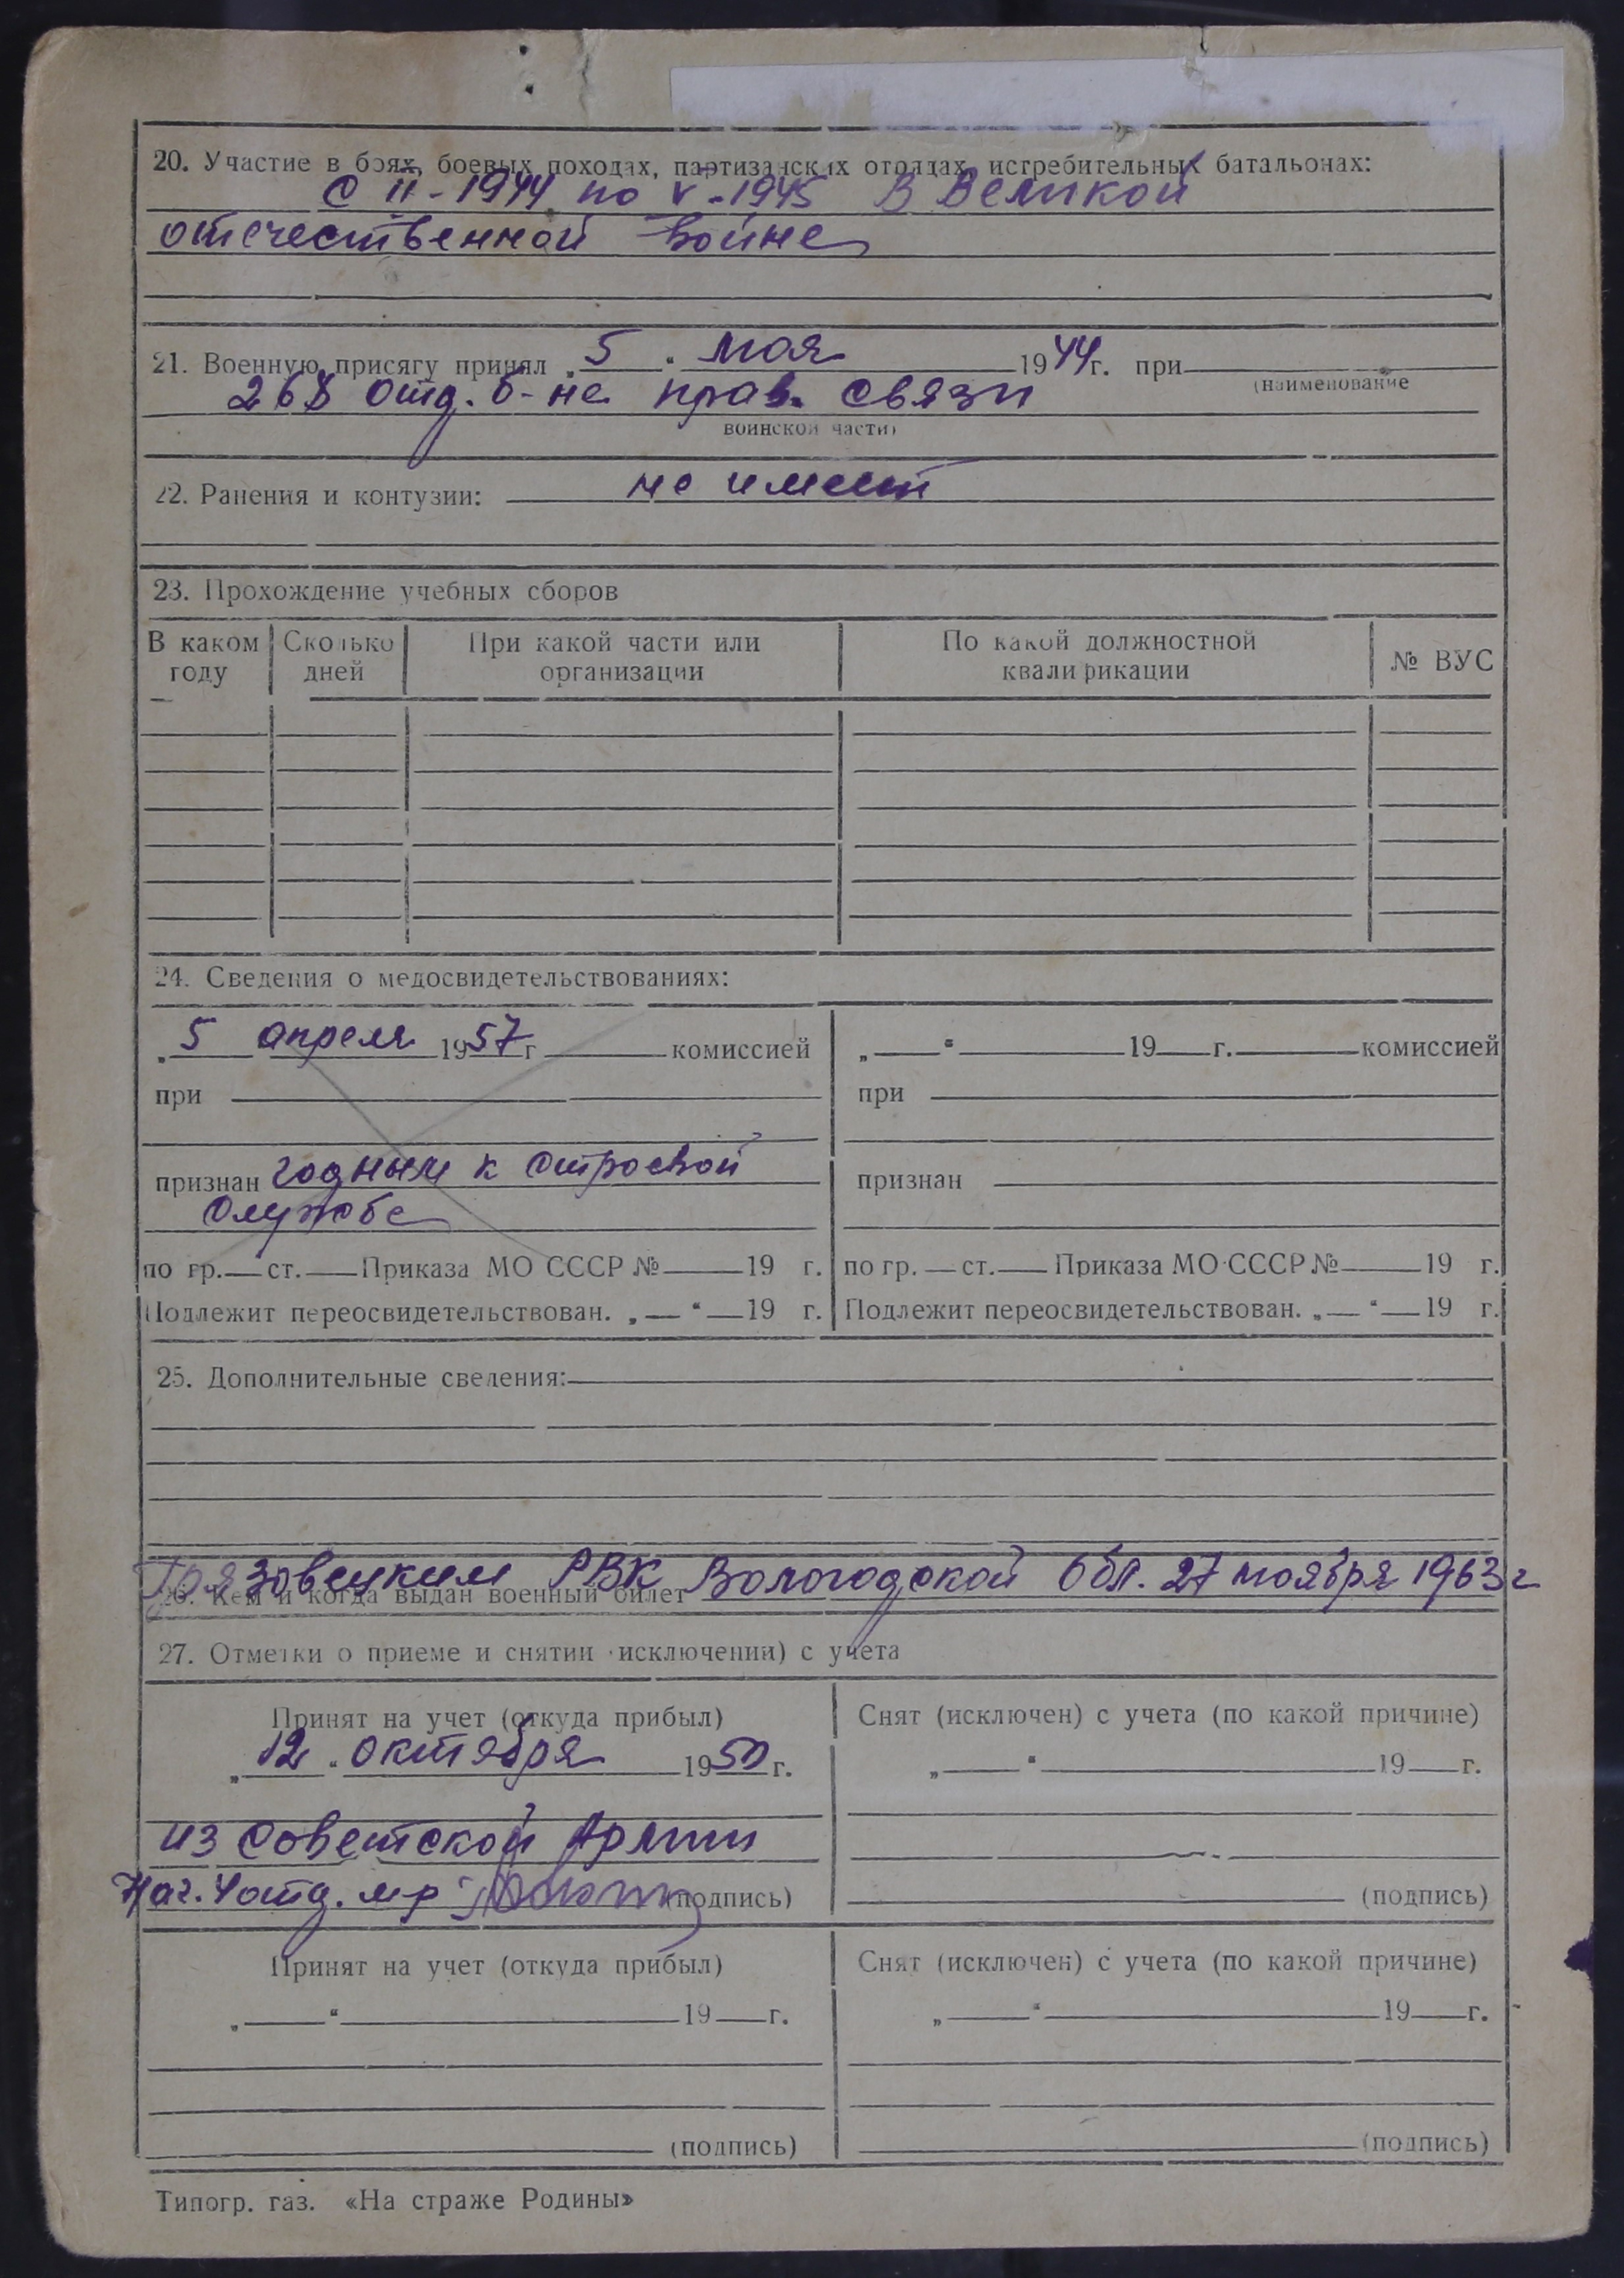 20. Участие в боях, боевых походах, партизанских отрядах, истребительных батальонах:
с II-1944 по V-1945 в Великой
отечественной войне
21. Военную присягу принял „5“ мая 1944 г. при
(наименование
268 отд. б-не прав. связи
воинской части)
22. Ранения и контузии: не имеет
23. Прохождение учебных сборов
В каком году Сколько дней При какой части или организации По какой должностной квалификации № ВУС
24. Сведения о медосвидетельствованиях:
„5 апреля 1957 г комиссией
при
признан годным к строевой
службе
по гр. ст. Приказа МО СССР № 19 г.
Подлежит переосвидетельствован. „ “ 19 г.
„ “ 19 г. комиссией
при
признан
по гр. ст. Приказа МО СССР № 19 г.
Подлежит переосвидетельствован. „ “ 19 г.
25. Дополнительные сведения:
Грязовецким РВК Вологодской обл. 27 ноября 1963 г
26. Кем и когда выдан военный билет
27. Отметки о приеме и снятии (исключении) с учета
Принят на учет (откуда прибыл)
„12“ октября 1950 г.
из Советской Армии
Нач. 4 отд. м-р (подпись)
Снят (исключен) с учета (по какой причине)
„ “ 19 г.
(подпись)
Принят на учет (откуда прибыл)
„ “ 19 г.
(подпись)
Снят (исключен) с учета (по какой причине)
„ “ 19 г.
(подпись)
Типогр. газ. «На страже Родины»